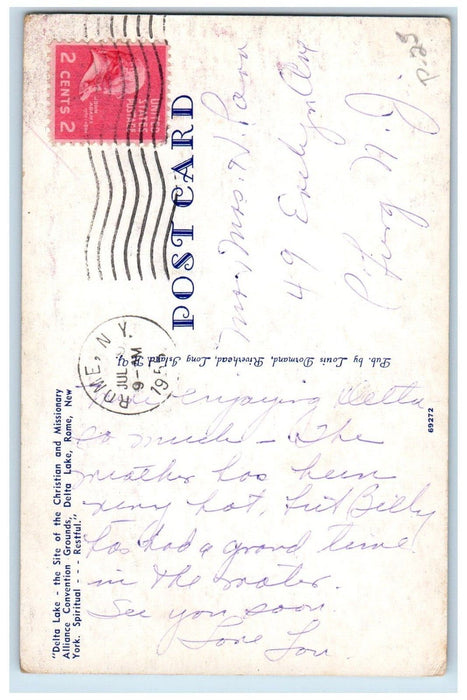 POST CARD
UNITED
STATES
POSTAGE
JOHN
ADAMS
2 CENTS 2
ROME, N.Y.
JUL
9-AM
195
P.25
Mr + Mrs. H.
49 Evelyn Ave
N. J.
Pub. by Louis Dormand, Riverhead, Long Island, N.Y.
69272
"Delta Lake - the Site of the Christian and Missionary
Alliance Convention Grounds, Delta Lake, Rome, New
York. Spiritual - - - Restful."
enjoying Delta
so much - The
weather has been
very hot, but Billy
has had a grand time
in the water.
See you soon
Love Lou